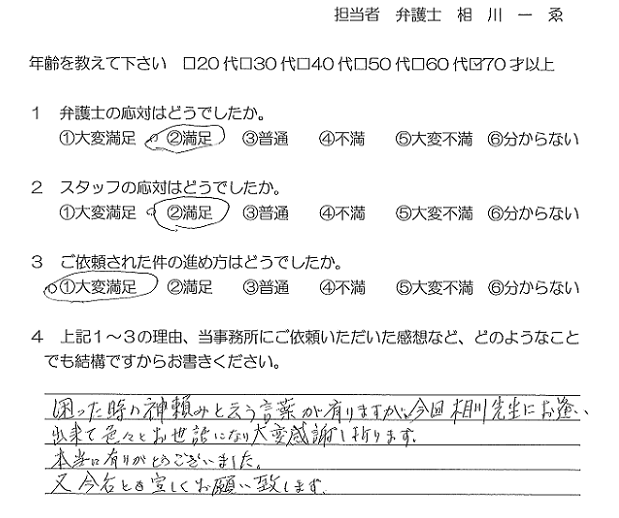 担当者 弁護士 相 川 一 ゑ
年齢を教えて下さい □20代□30代□40代□50代□60代☑70才以上
1 弁護士の応対はどうでしたか。
①大変満足 ②満足 ③普通 ④不満 ⑤大変不満 ⑥分からない
2 スタッフの応対はどうでしたか。
①大変満足 ②満足 ③普通 ④不満 ⑤大変不満 ⑥分からない
3 ご依頼された件の進め方はどうでしたか。
①大変満足 ②満足 ③普通 ④不満 ⑤大変不満 ⑥分からない
4 上記1~3の理由、当事務所にご依頼いただいた感想など、どのようなこと
でも結構ですからお書きください。
困った時の神頼みと云う言葉が有りますが、今回相川先生にお逢い
出来て色々とお世話になり大変感謝し折ります。
本当に有りがとうございました。
又今后とも宜しくお願い致します。